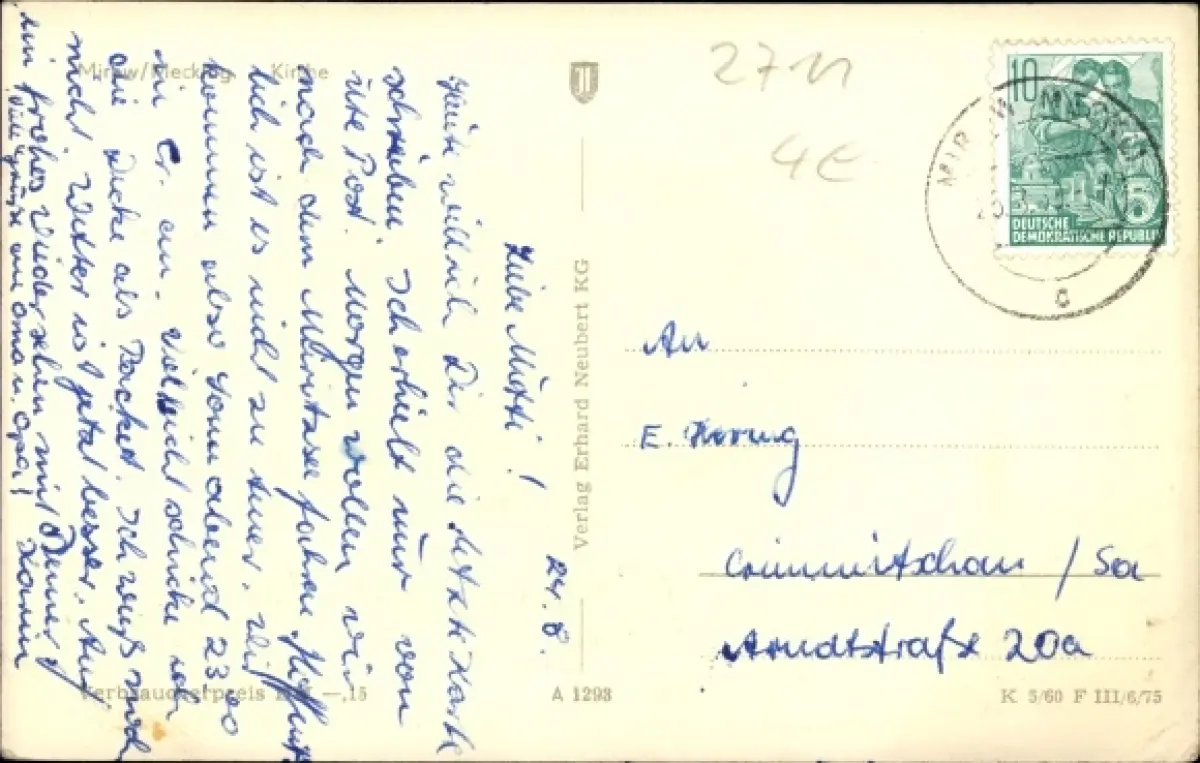 Mirow/Mecklbg. Kirche
24. 8.
Liebe Mutti!
Heute will ich Dir die letzte Karte
schreiben. Ich erhielt nur von
Ute Post. Morgen wollen wir
nach dem Müritzsee fahren. Hoffent
lich ist es nicht zu teuer. Wir
kommen also Sonnabend 23.00
in C. an. Vielleicht schicke ich
die Decke als Packet. Ich weiß noch
nicht. Wetter ist jetzt besser. Auf
ein frohes Wiedersehen mit Deiner
Karin
Viele Grüße an Oma u. Opa!
Verbraucherpreis DM —,15
A 1293
Verlag Erhard Neubert KG
27 11
4e
10
5
DEUTSCHE
DEMOKRATISCHE REPUBLIK
c
An
E.
Crimmitschau / Sa
Arndtstraße 20a
K 5/60 F III/6/75